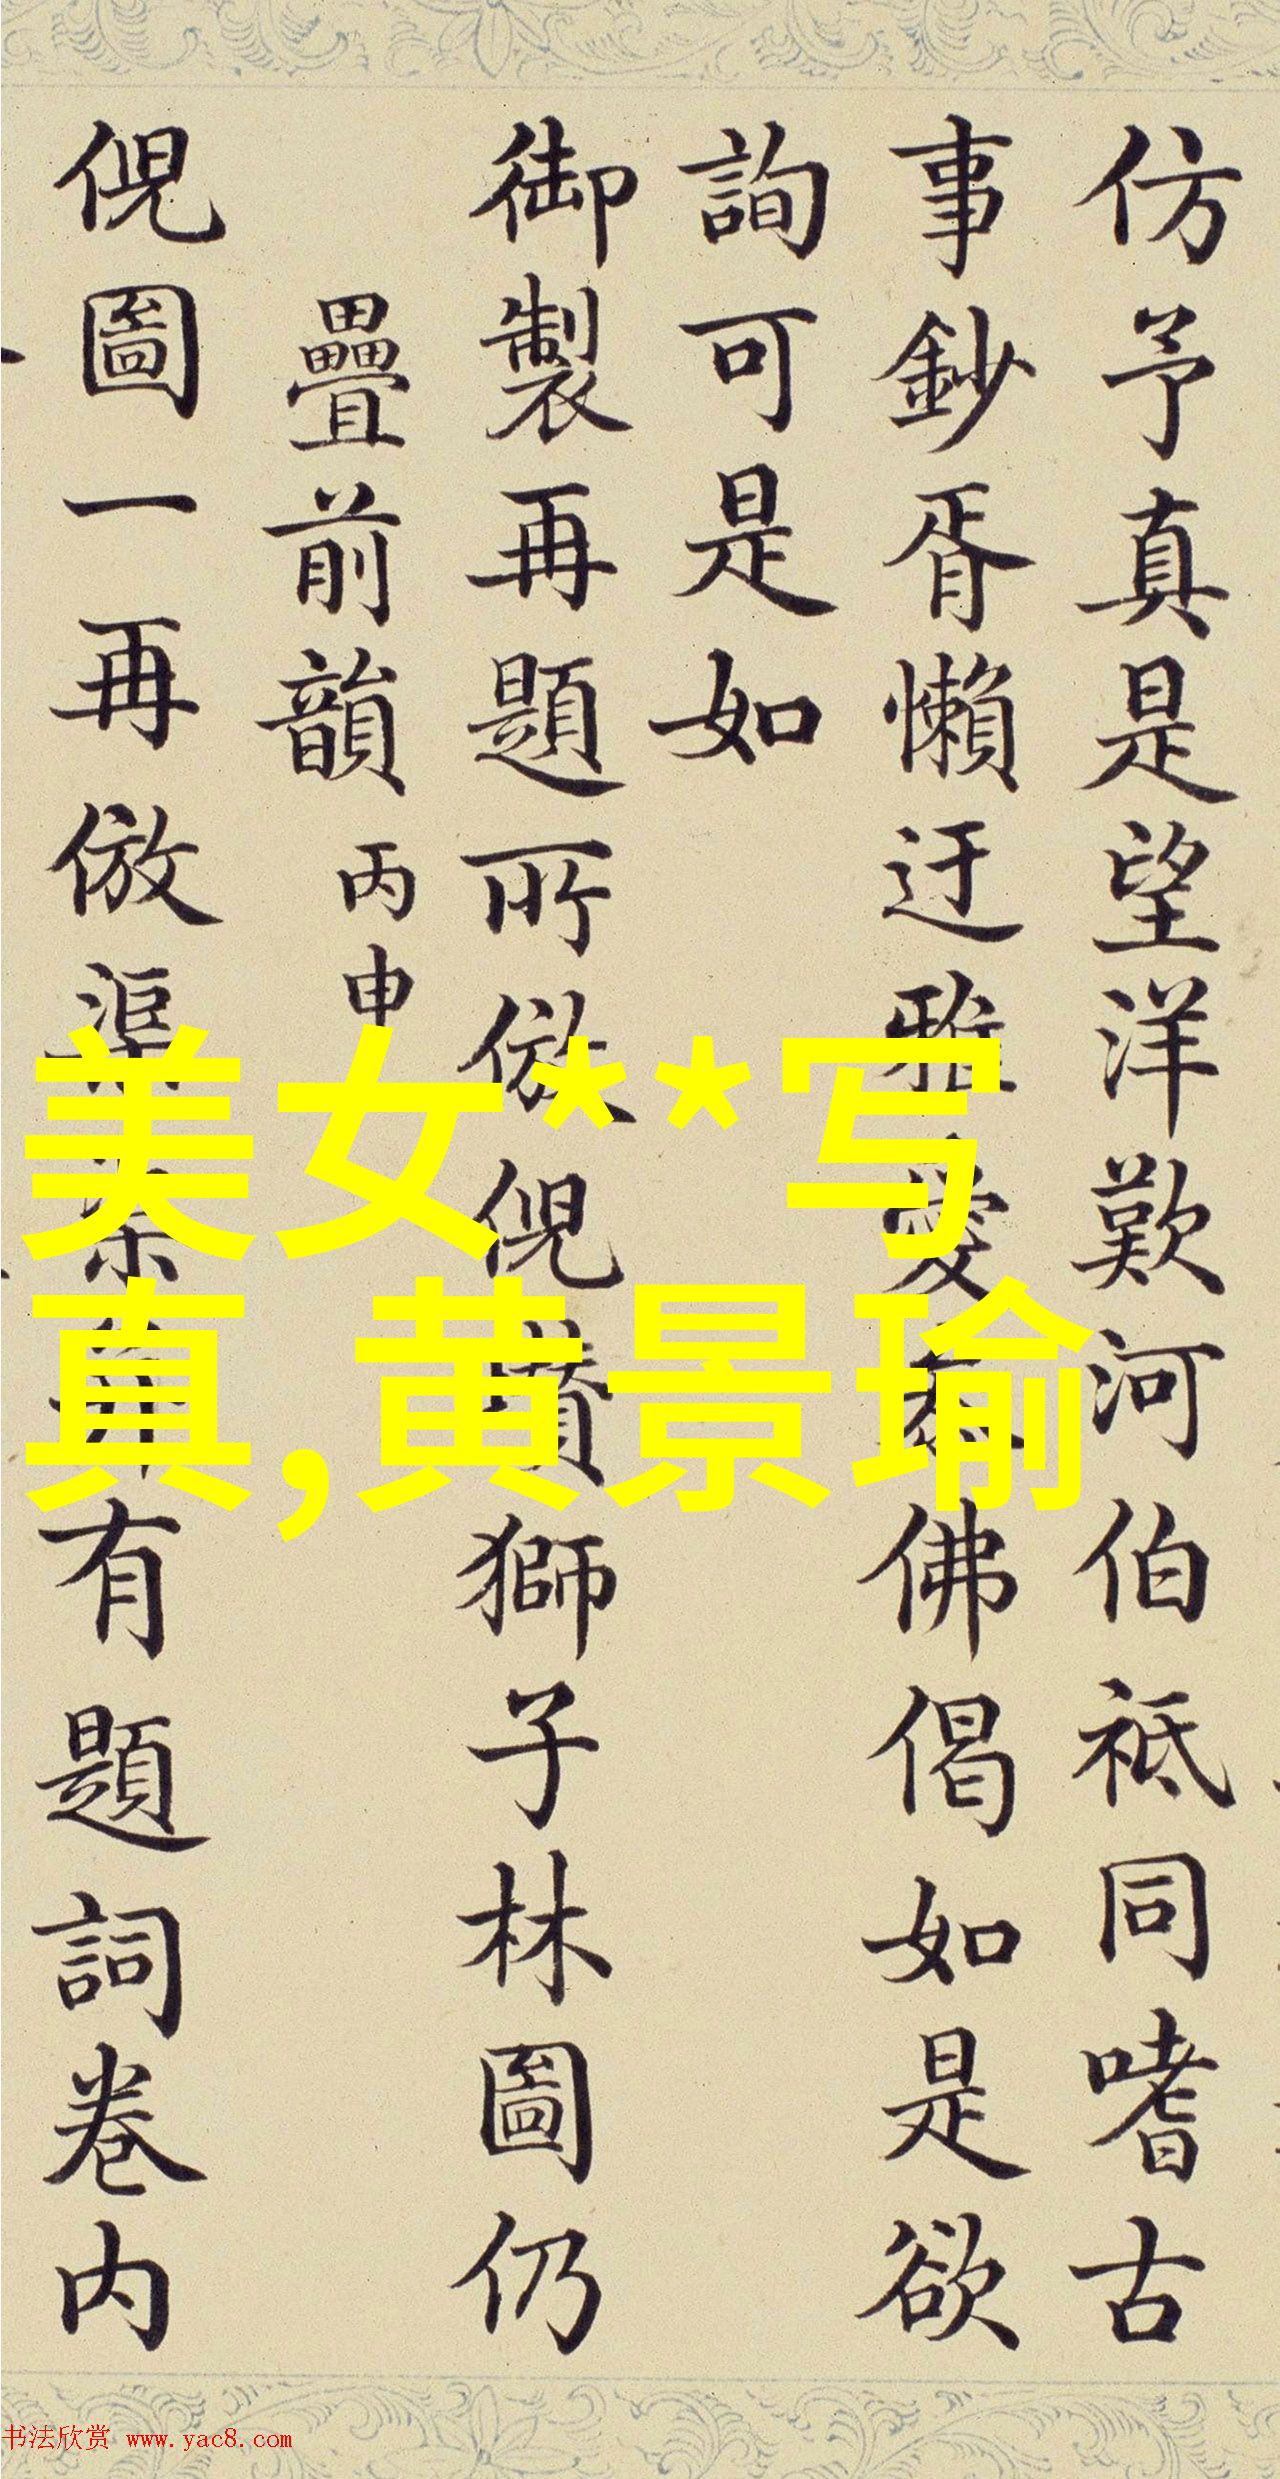 仿予真是望洋歎河伯祗同嗜古
事鈔胥懶迂雅愛佛偈如是欲
詢可是如
御製再題所倣倪瓚獅子林圖仍
疊前韻 丙申
倪圖一再倣有題詞卷内
美女**写
真,黄景瑜
书法欣赏 www.yac8.com